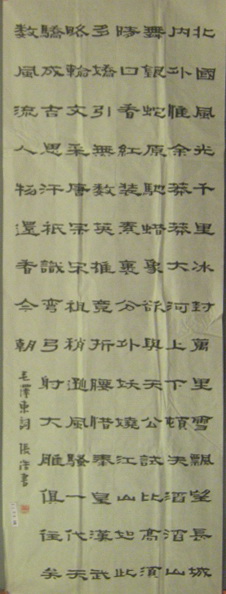 北國風光千里冰封萬里雪飄望長城
内外惟余莽莽大河上下頓失滔滔山
舞銀蛇原馳蠟象欲與天公試比高須
晴日看紅裝素裹分外妖嬈江山如此
多嬌引無數英雄競折腰惜秦皇漢武
略輸文采唐宗宋祖稍遜風騷一代天
驕成吉思汗祇識彎弓射大雕俱往矣
數風流人物還看今朝
毛澤東詞 張 書